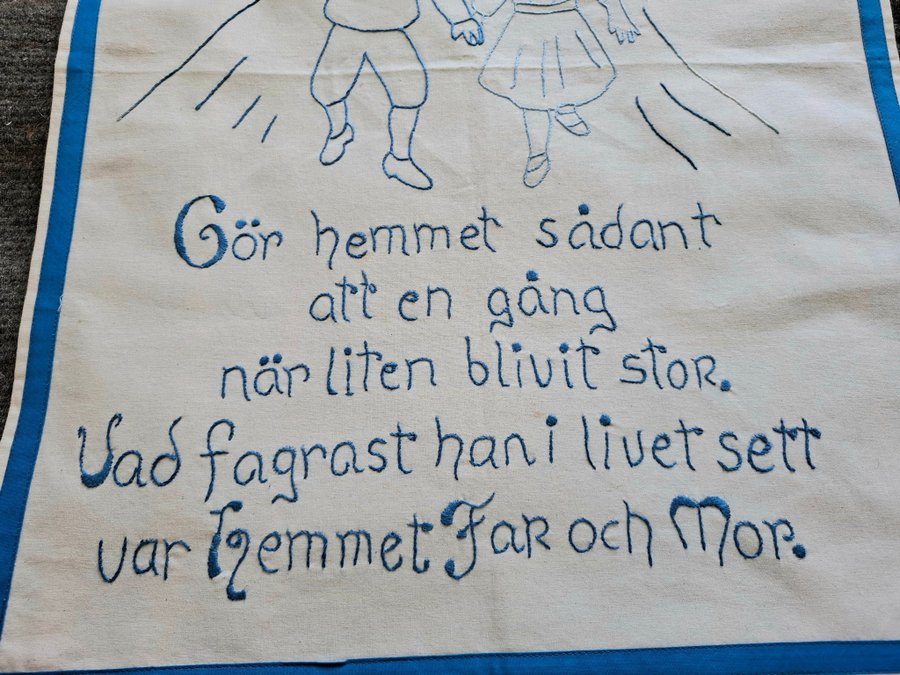 Gör hemmet sådant
att en gång
när liten blivit stor.
Vad fagrast han i livet sett
var Hemmet Far och Mor.